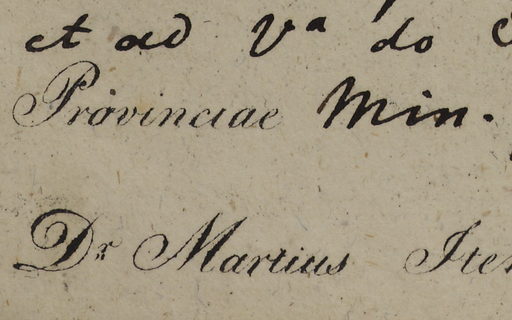 et ad Va do
Provinciae Min.
Dr. Martius Iter